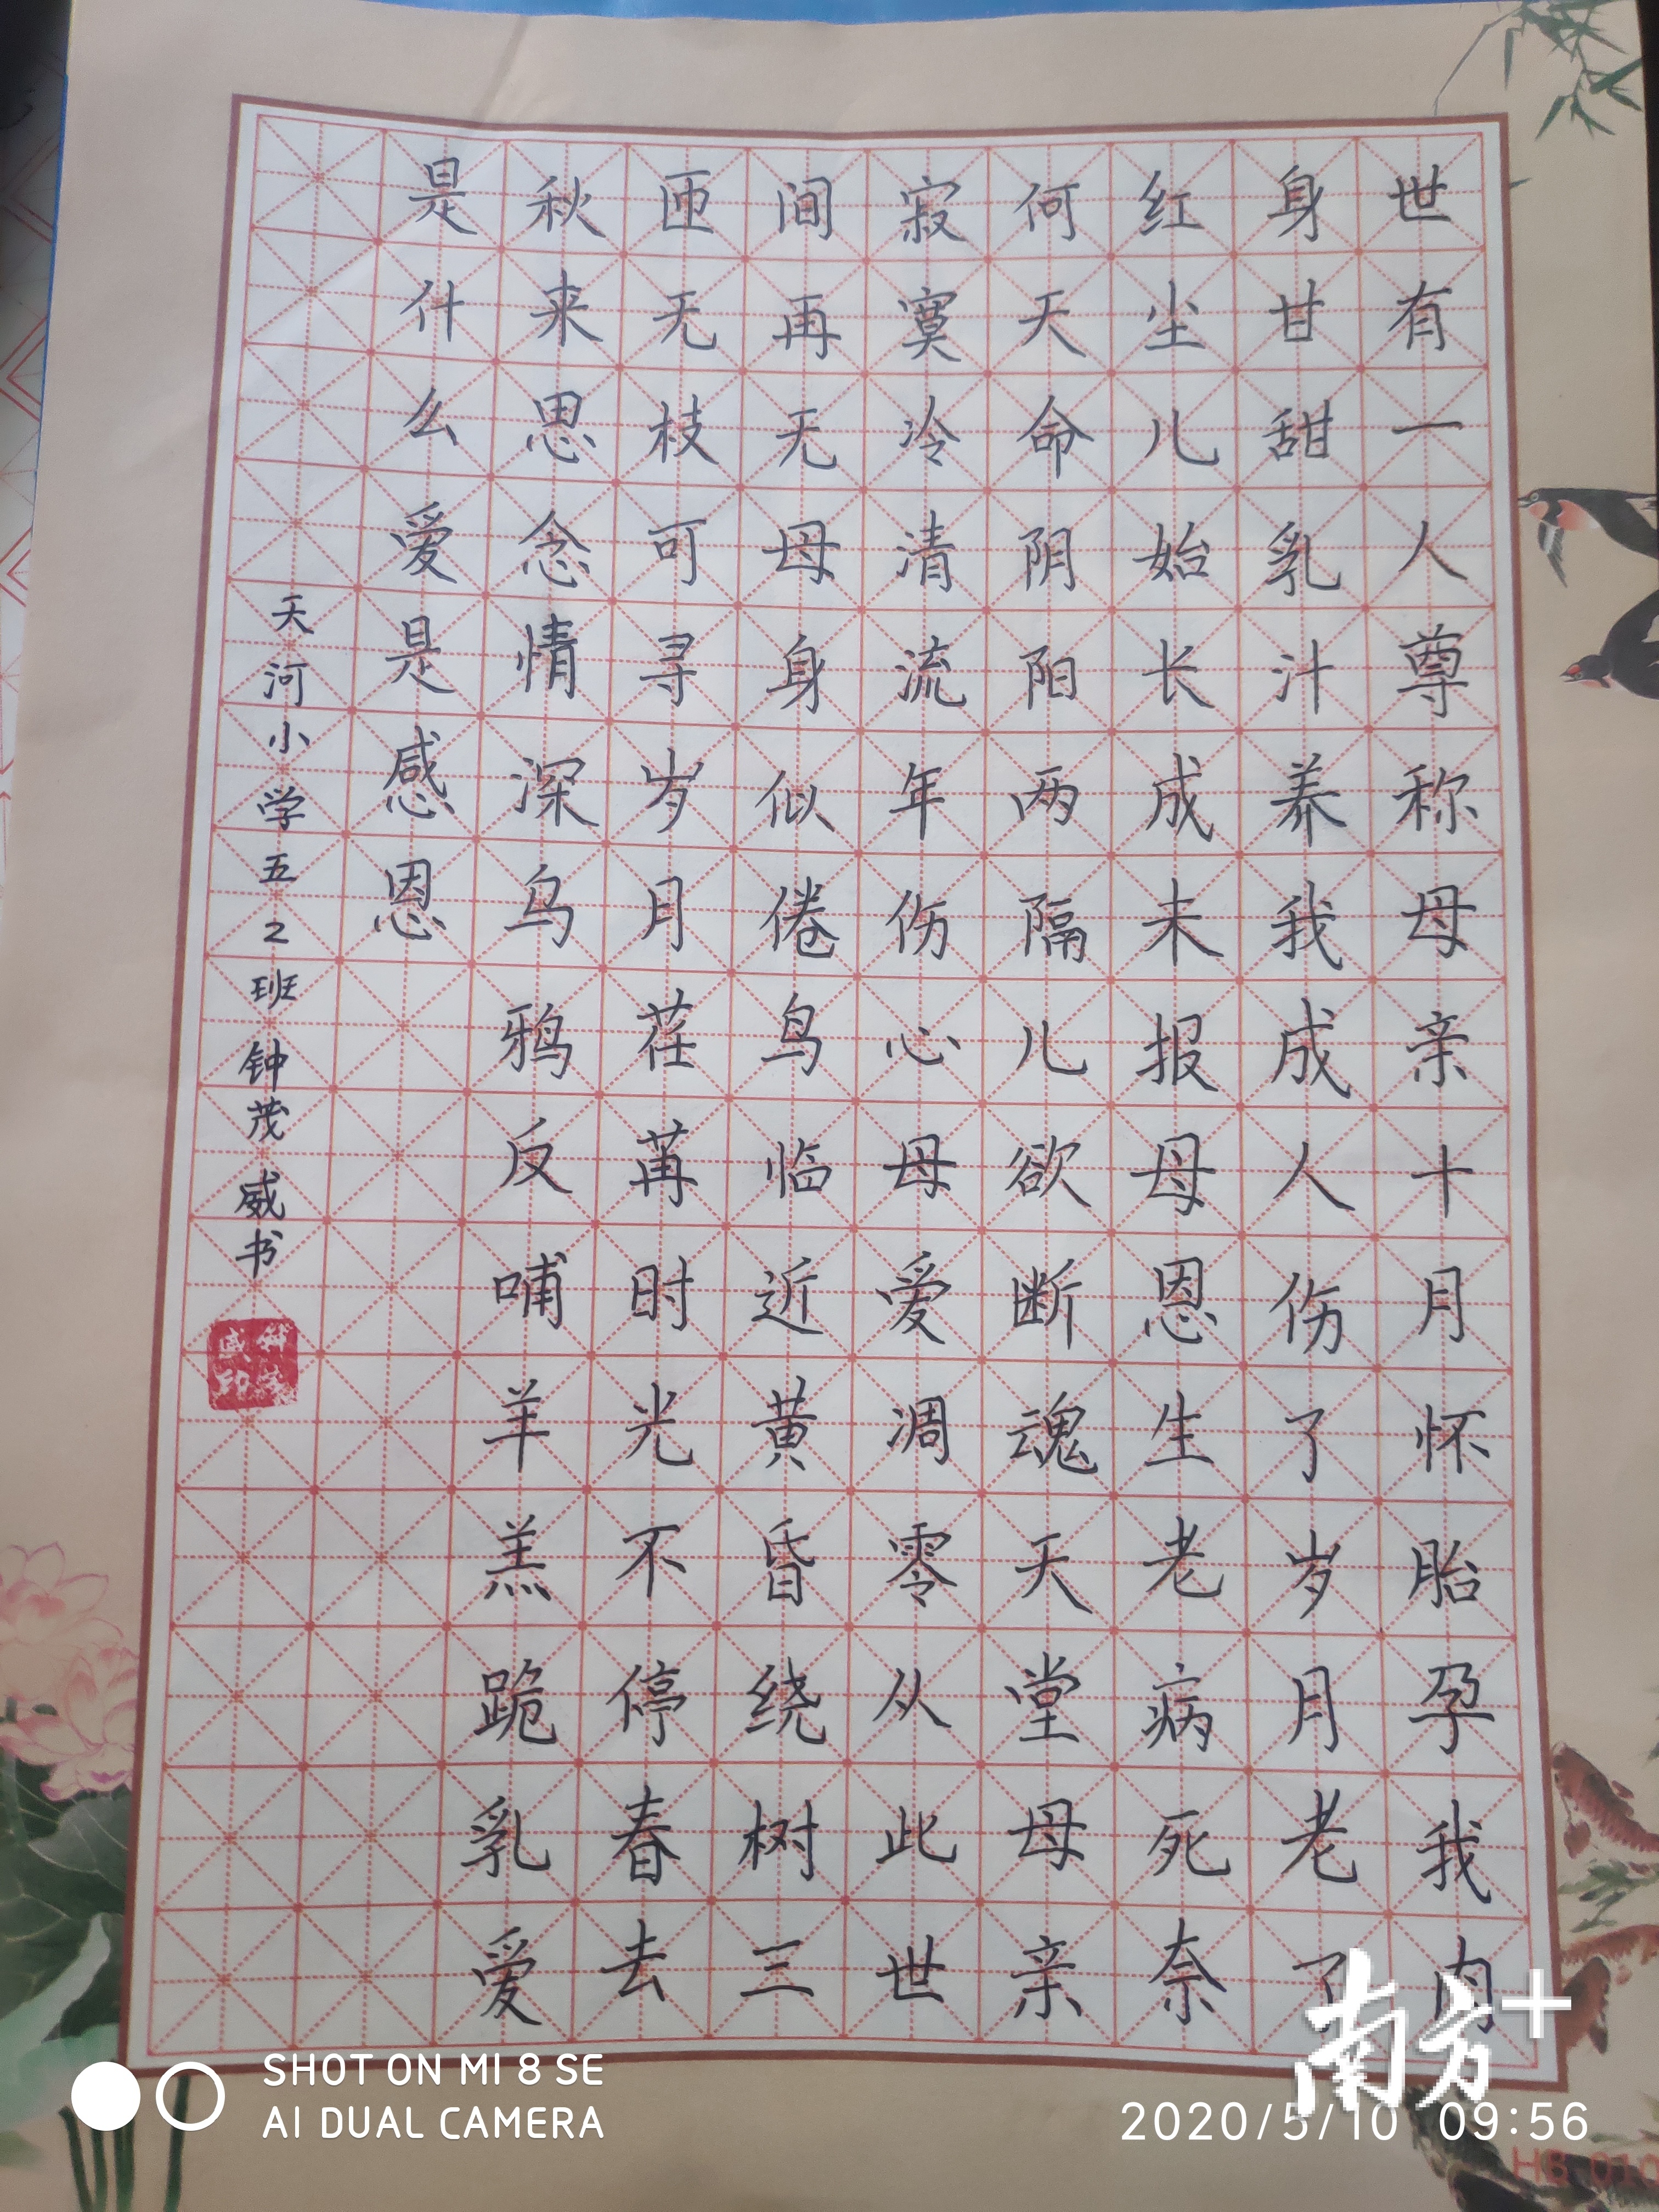 世有一人尊称母亲十月怀胎孕我肉
身甘甜乳汁养我成人伤了岁月老了
红尘儿始长成未报母恩生老病死奈
何天命阴阳两隔儿欲断魂天堂母亲
寂寞冷清流年伤心母爱凋零从此世
间再无母身似倦鸟临近黄昏绕树三
匝无枝可寻岁月荏苒时光不停春去
秋来思念情深乌鸦反哺羊羔跪乳爱
是什么爱是感恩
天河小学五2班钟茂威书
南方+
SHOT ON MI 8 SE
AI DUAL CAMERA
2020/5/10 09:56
HB 010